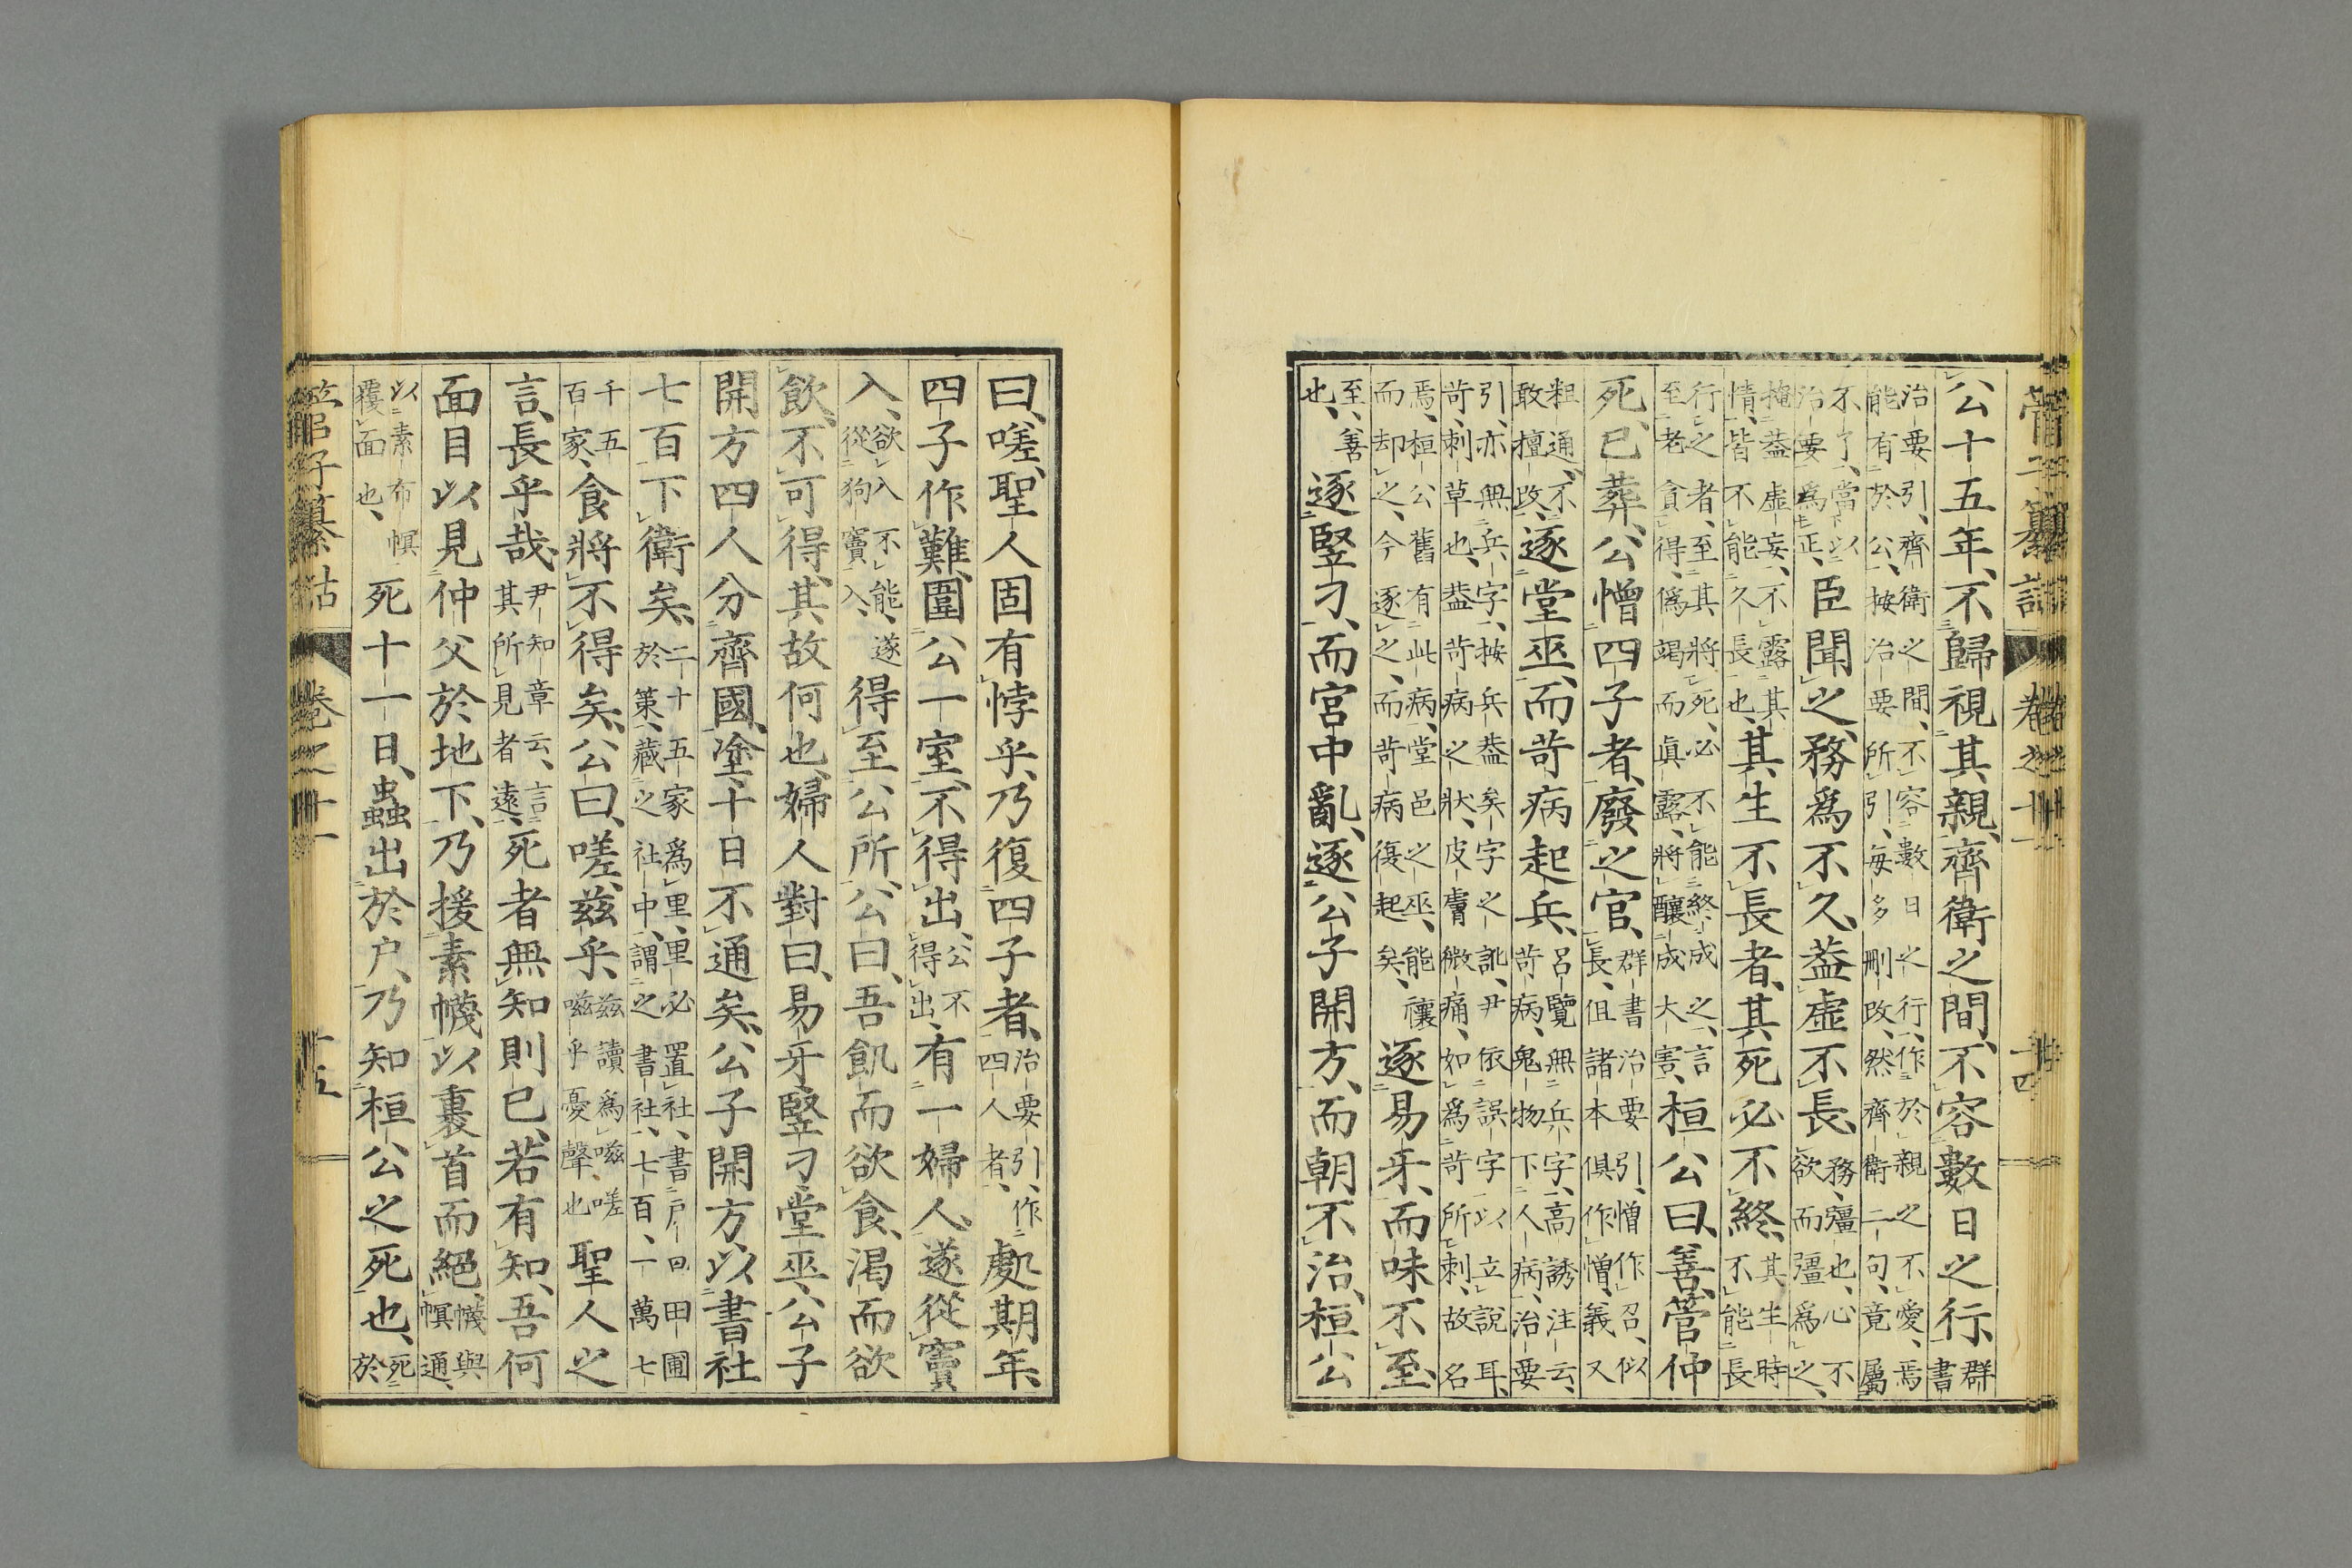 管子纂詁 卷之十一 十四
公十五年、不歸視其親、齊衛之間、不容數日之行、群書
治要引、齊衛之間、不容數日之行、作於親之不愛、焉
能有於公、按治要所引、每多刪改、然齊衛二句、竟屬
不了、當以治要爲正、臣聞之、務爲不久、葢虛不長、務、彊也、心不欲而彊爲之、
掩葢虛妄、不露其情、皆不能久長也、其生不長者、其死必不終、其生時不能長
行之者、至其將死、必不能終、成之、言至老貪得、僞竭而眞露、將釀成大害、桓公曰、善、管仲
死、已葬、公憎四子者、廢之官、群書治要引、憎作召、似長、但諸本俱作憎、義又
粗通、不敢擅改、逐堂巫、而苛病起兵、呂覽無兵字、高誘注云、苛病、鬼物下人病、治要
引、亦無兵字、按兵葢矣字之訛、尹依誤字以立說耳、
苛、刺草也、葢苛病之狀、皮膚微痛、如爲苛所刺、故名
焉、桓公舊有此病、堂邑之巫、能禳而却之、今逐之、而苛病復起矣、逐易牙、而味不至、
至、善也、逐豎刁、而宮中亂、逐公子開方、而朝不治、桓公
曰、嗟、聖人固有悖乎、乃復四子者、治要引、作四人者、處期年、
四子作難、圍公一室、不得出、公不得出、有一婦人、遂從竇
入、欲入不能、遂從狗竇入、得至公所、公曰、吾飢而欲食、渴而欲
飲、不可得、其故何也、婦人對曰、易牙豎刁堂巫、公子
開方四人分齊國、塗、十日不通矣、公子開方、以書社
七百下衛矣、二十五家爲里、里必置社、書戶口田圃於策、藏之社中、謂之書社、七百、一萬七
千五百家、食將不得矣、公曰、嗟、茲乎、茲讀爲嗞、嗟嗞乎憂聲也聖人之
言、長乎哉、尹知章云、言其所見者遠、死者無知則已、若有知、吾何
面目以見仲父於地下、乃援素幭、以裹首而絕、幭與幎通、
以素布幎覆面也、死十一日、蟲出於戶、乃知桓公之死也、死於
管子纂詁 卷之十一 十五